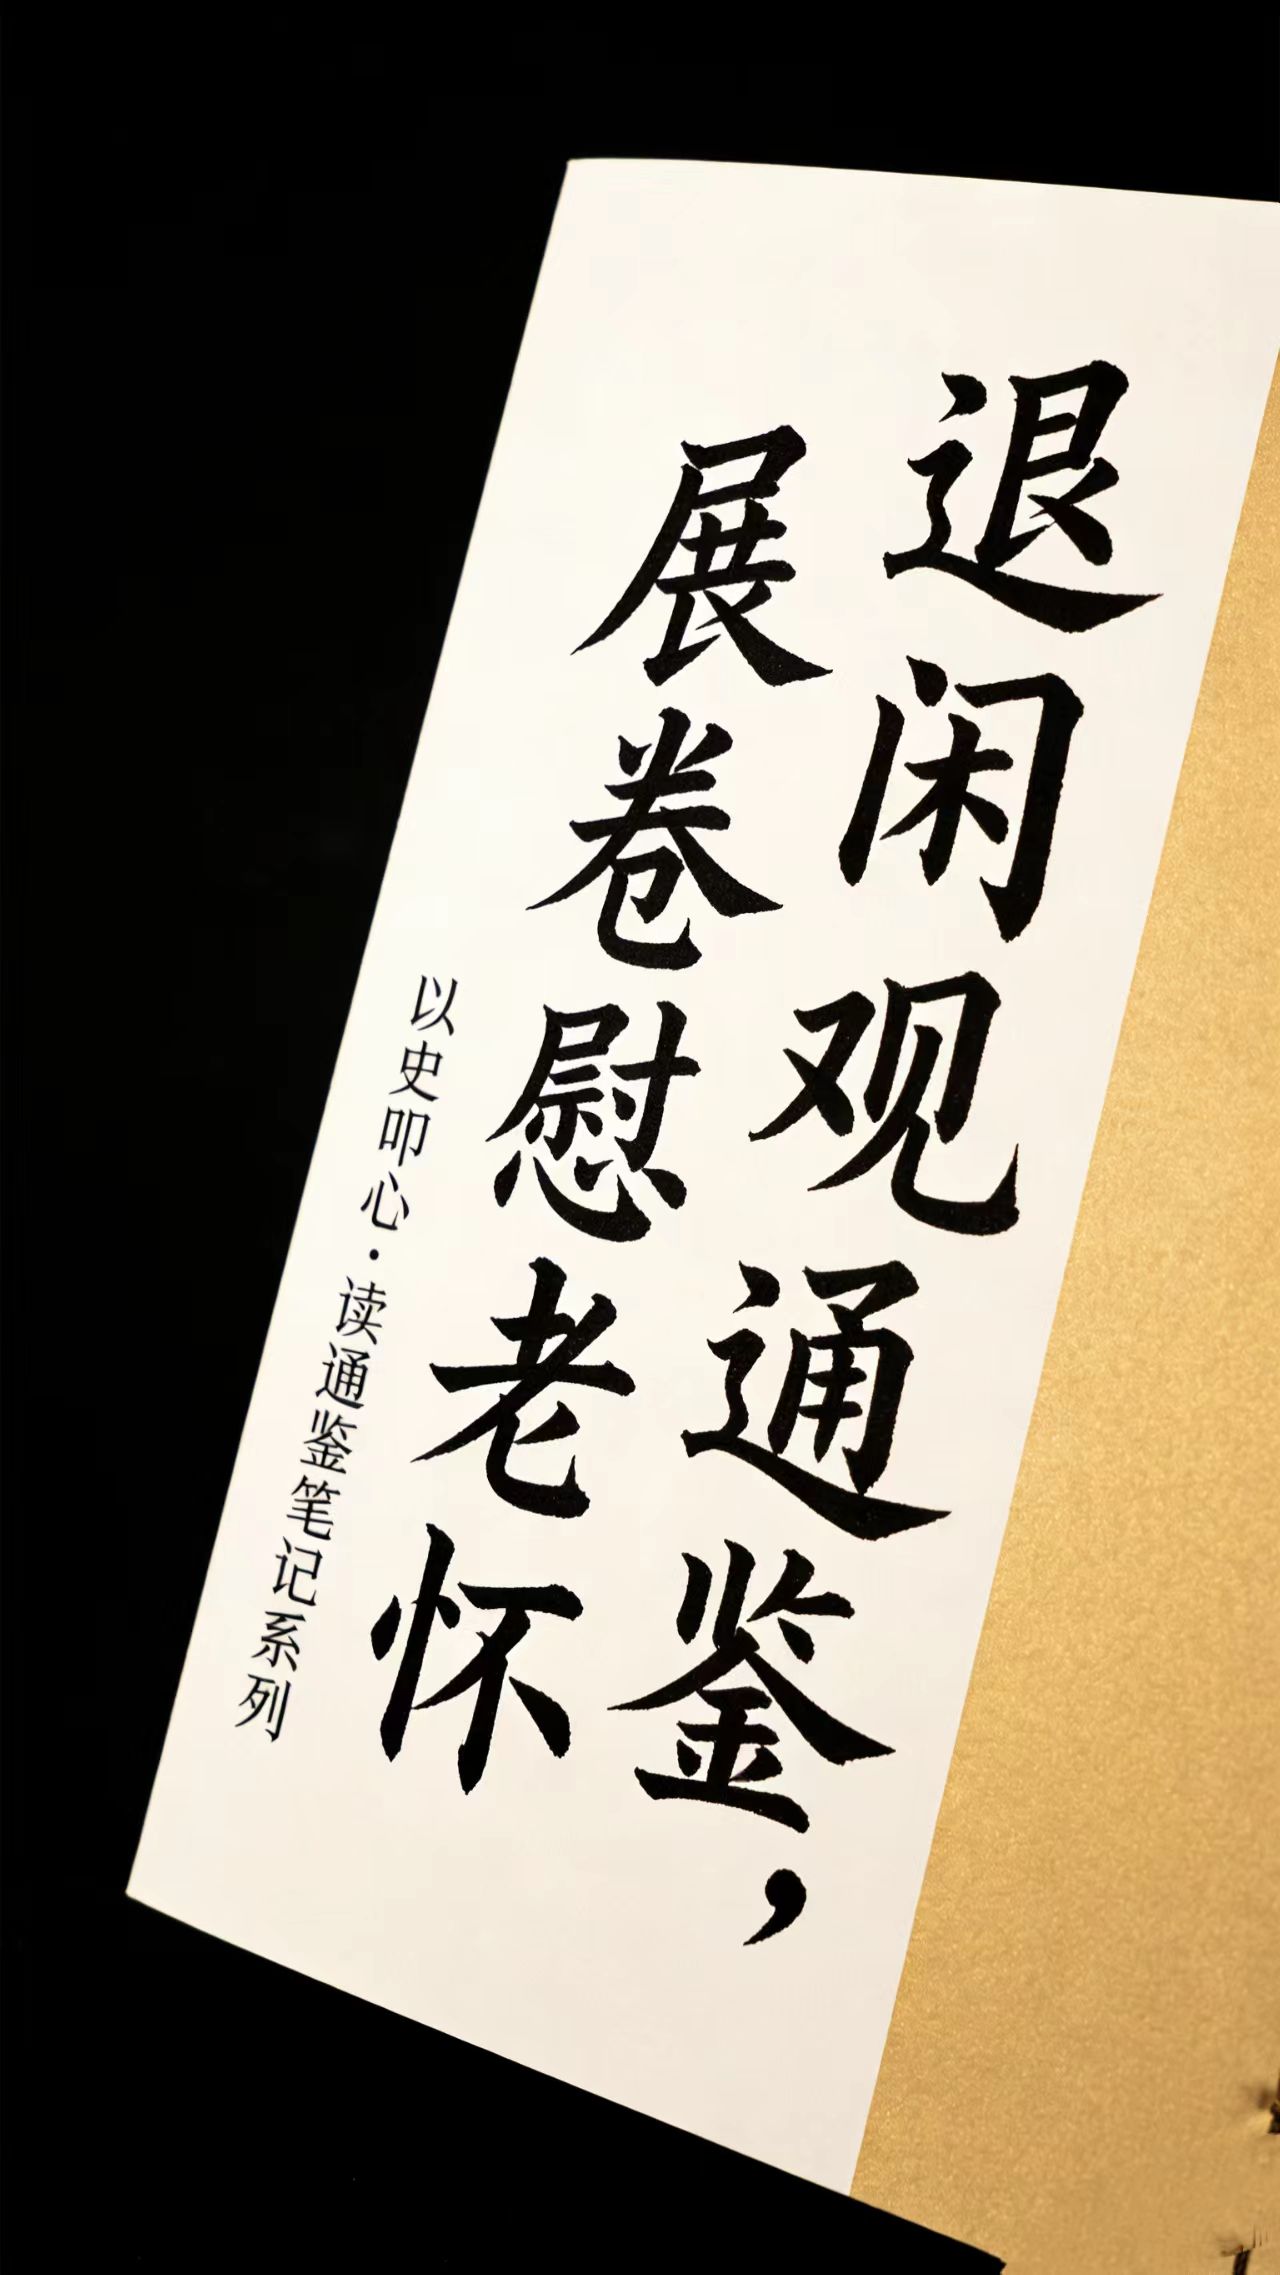 退闲观通鉴，
展卷慰老怀
以史叩心·读通鉴笔记系列